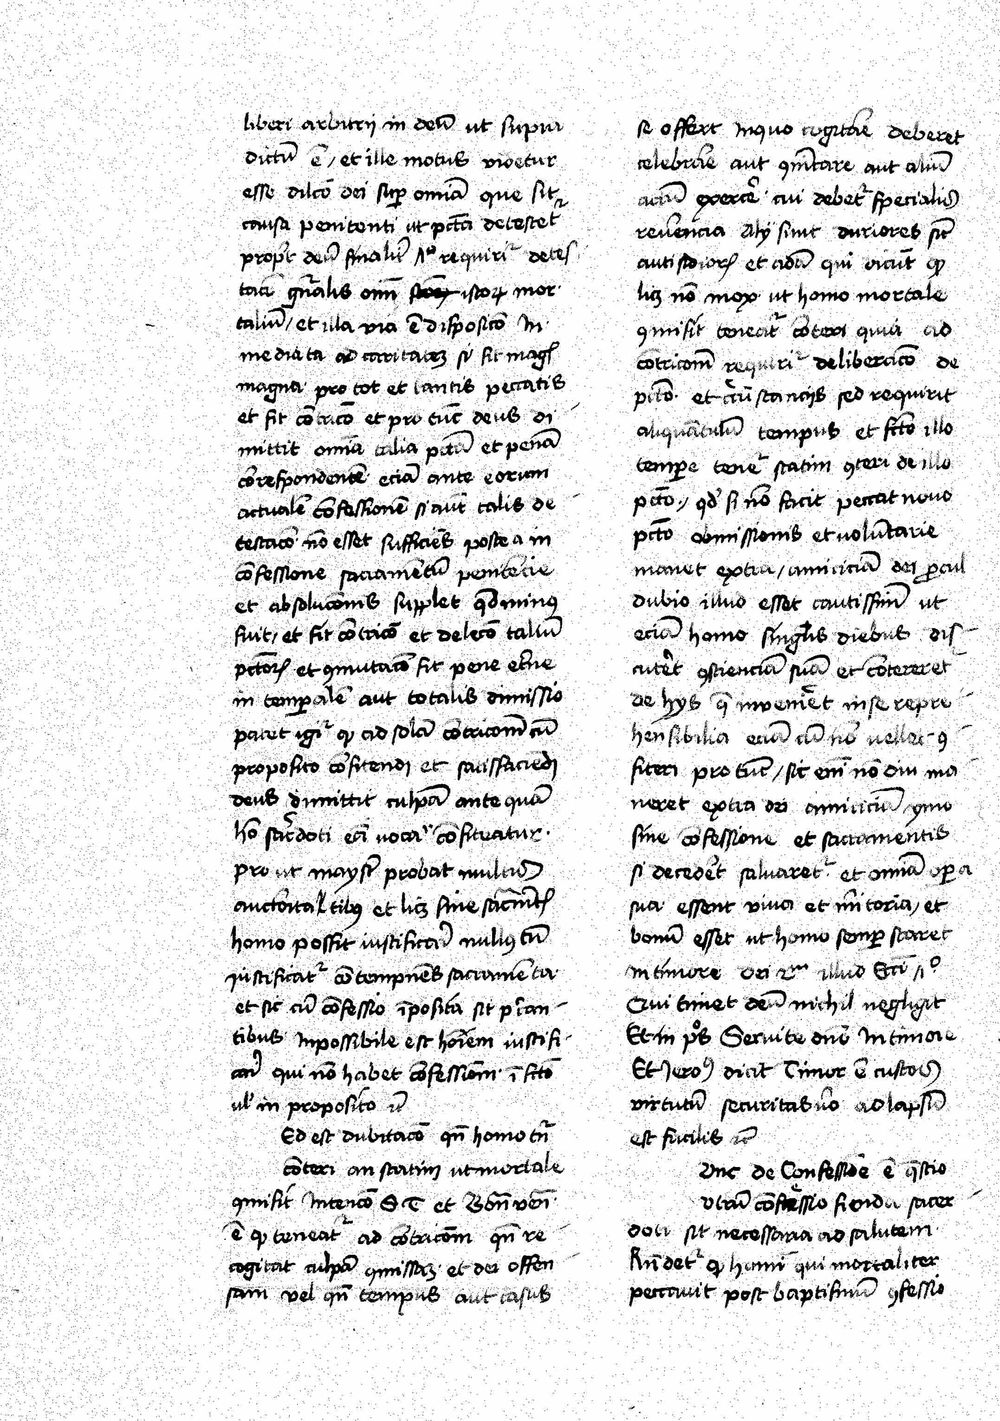 liberi arbitrij in deū ut supra
dictū ē / et ille motus videtur
esse dilcō dei sup omīa que sit
causa penitenti ut pctā detestet
propt deū finalit 1º requirit detes
taco gn̄alis oīm istorum mor
talium / et illa via ē disposicō in
mediata ad caritatem si fit magis
magna pro tot et tantis peccatis
et fit cōtricō et pro tūc deus di
mittit omīa talia pctā et penā
correspondentē eciam ante eorum
actualē cōfessionē si aut talis de
testacō nō esset sufficiēs postea in
cōfessione sacramētū penitēcie
et absolucōnis supplet qd minus
fuit / et fit cōtricō et delecō talium
pctorum et 9mutacō fit pene etne
in temporalē aut totalis dimissio
patet igit qd ad solā cōtricōnem cū
proposito cōfitendi et satisfaciēdi
deus dimittit culpā ante quā
hō sacerdoti eciam vocaliter cōfiteatur
prout maystr probat multis
auctoritatibus et licet sine sacramentis
homo possit iustificari nullus tamen
iustificatur cōtempnēs sacramenta
et sic cū cōfessio īposita sit p̄can
tibus Inpossibile est hoīem iustifi
cari qui nō habet cōfessionem ī fctō
ul in proposito ıc
Ed est dubitacō qn̄ homo tn̄r
cōteri an statim ut mortale
9misit Intencō S T et Bonven
ē qd teneatur ad cōtricōnem qn̄ re
cogitat culpā 9missam et dei offen
sam vel qn̄ tempus aut casus
se offert Inquo cogitare deberet
celebrare aut 9mcare aut aliū
actū exercere cui debetur specialis
reverencia Alij sunt duriores sicut
antiquiores et adam qui dicunt qd
licet nō mox ut homo mortale
9misit teneatur cōteri quia ad
cōtricōnem requirit deliberacō de
pctō et circūstancijs sed requirit
aliquantulū tempus et fctō illo
tempore tenetur statim 9teri de illo
pctō / qd si nō facit peccat novo
pctō obmissionis et voluntarie
manet extra / amiciciā dei procul
dubio illud esset cautissimū ut
eciā homo singulis diebus dis
cuteret 9scienciā suā et cōtereretur
de hijs que inveniret in se repre
hensibilia eciam cū nō vellet 9
fiteri pro tūc / sic enī nō diu ma
neret extra dei amiciciam ymo
sine cōfessione et sacramentis
si decederet salvaretur et omīa opera
sua essent viva et mitoria / et
bonū esset ut homo semper staret
in timore dei iuxta illud Eccī 1º
Qui timet deū nichil negligit
Et in ps Servite dno In timore
Et Jeronimus dicit Timor ē custos
virtutū securitas vero ad lapsū
est facilis ıc
unc de Confessiōe ē questio
vtrū cōfessio fienda sacer
doti sit necessaria ad salutem
Rn̄detur qd homini qui mortaliter
peccavit post baptismū 9fessio